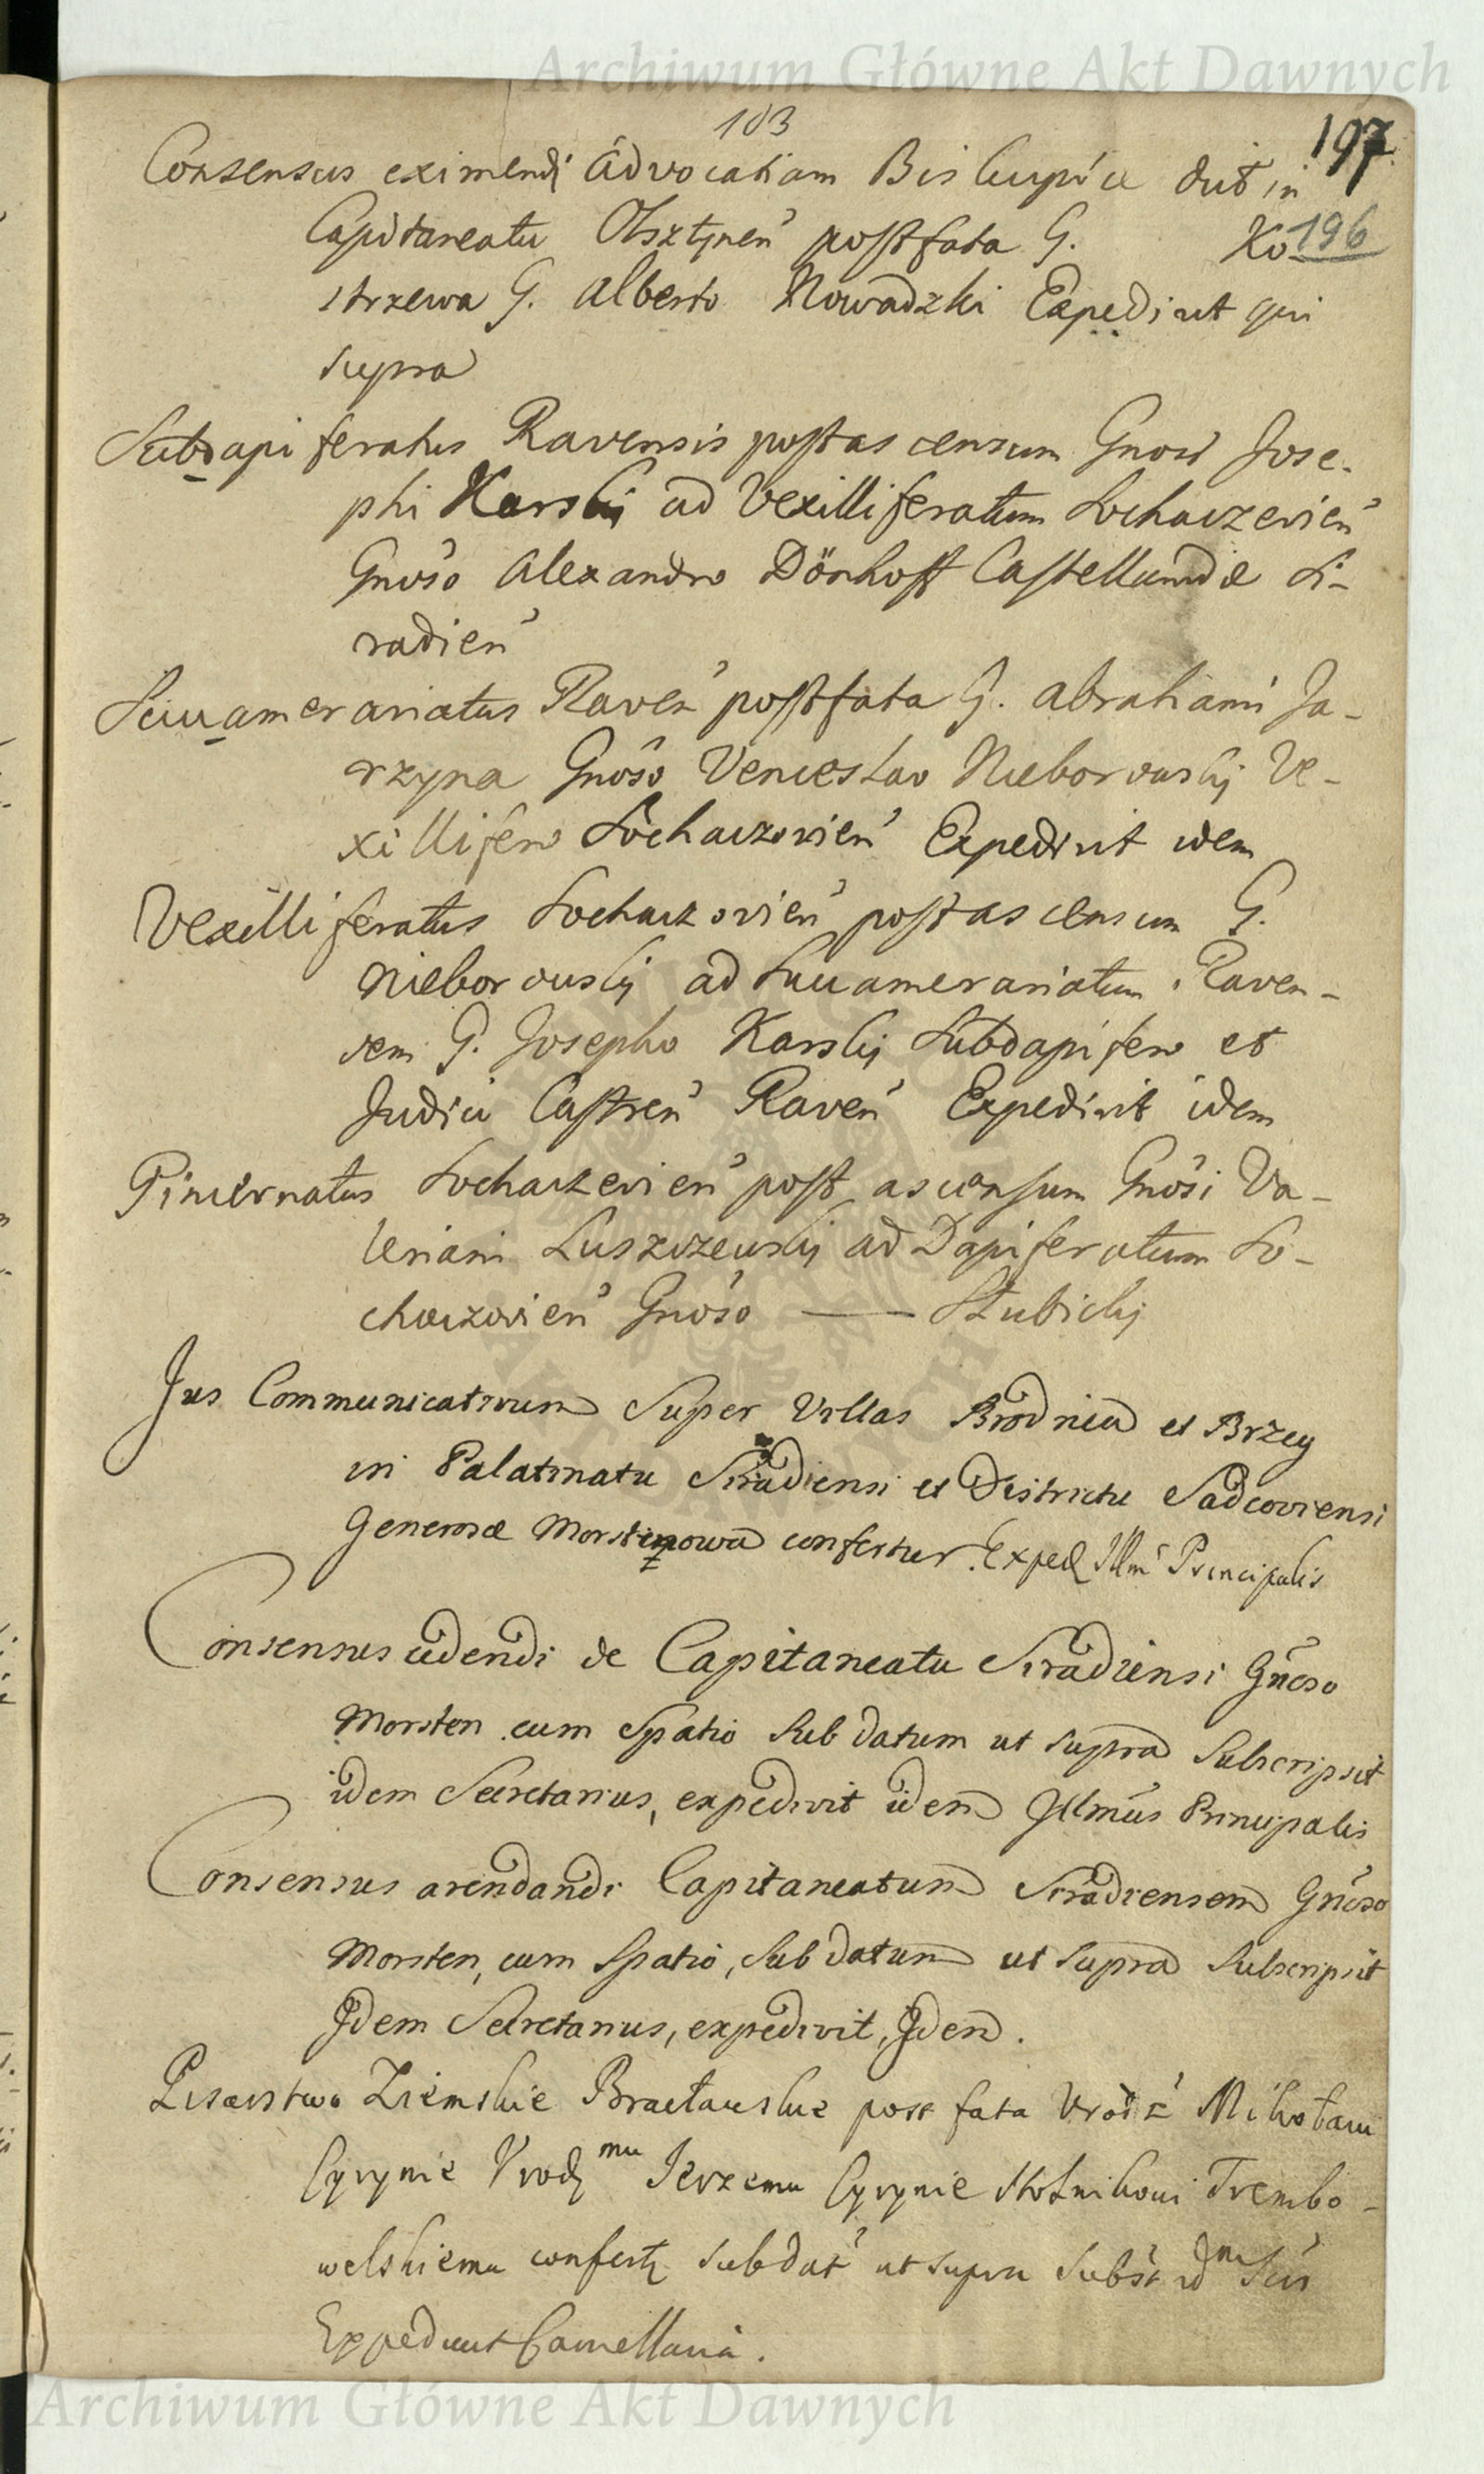 Archiwum Główne Akt Dawnych
103
197
Consensus eximendi advocatiam Biskupice dict in
196
Capitaneatu Olsztynen̄ post fata G. Ko-
strzewa G. Alberto Nowadzki Expedivit qui
supra
Subdapiferatus Ravensis post ascensum Gnosi Jose-
phi Karskij ad Vexilliferatum Sochaczevien̄
Gnōso Alexandro Dönhoff Castellanidæ Si-
radien̄
Succamerariatus Raven̄ post fata G. Abrahami Ja-
rzyna Gnōso Venceslao Nieborouskij Ve-
xillifero Sochaczovien̄ Expedivit idem
Vexilliferatus Sochaczovien̄ post ascensum G.
Nieborouskij ad Succamerariatum Raven-
sem G. Josepho Karskij Subdapifero et
Judici Castren̄ Raven̄ Expedivit idem
Pincernatus Sochaczevien̄ post ascensum Gnōsi Va-
leriani Luszczeuskij ad Dapiferatum So-
chaczovien̄ Gnōso — Słubickij
Jus Communicativum Super Villas Brodnia et Brzeg
in Palatinatu Siradiensi et Districtu Sadcoviensi
Generosæ Morstinowa confertur. Exped Illm̄ Principalis
Consensus cedendi de Capitaneatu Siradiensi Gnōso
Morsten cum Spatio Sub datum ut supra Subscripsit
idem Secretarius, expedivit idem Illmūs Principalis
Consensus arendandi Capitaneatum Siradiensem Gnōso
Morsten, cum Spatio, Sub datum ut supra Subscripsit
Jdem Secretarius, expedivit, Jdem.
Pisarstwo Ziemskie Bracłauskie post fata Vrodz Mikołaiu
Cyrynie Vrodz mu Jerzemu Cyrynie Stolnikowi Trembo-
welskiemu confertz sub dat̄ ut supra Subst idm Srius
Expediunt Cancellaria.
Archiwum Główne Akt Dawnych